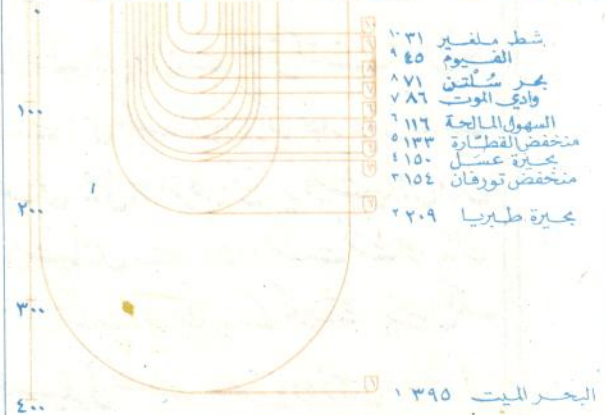 ٠
١٠٠
٢٠٠
٣٠٠
٤٠٠
شط ملغير ٣١ ١٠
الفيوم ٤٥ ٩
بحر سُلتن ٧١ ٨
وادي الموت ٨٦ ٧
السهول المالحة ١١٦ ٦
منخفض القطّارة ١٣٣ ٥
بحيرة عسَل ١٥٠ ٤
منخفض تورفان ١٥٤ ٣
بحيرة طبريا ٢٠٩ ٢
البحر الميت ٣٩٥ ١